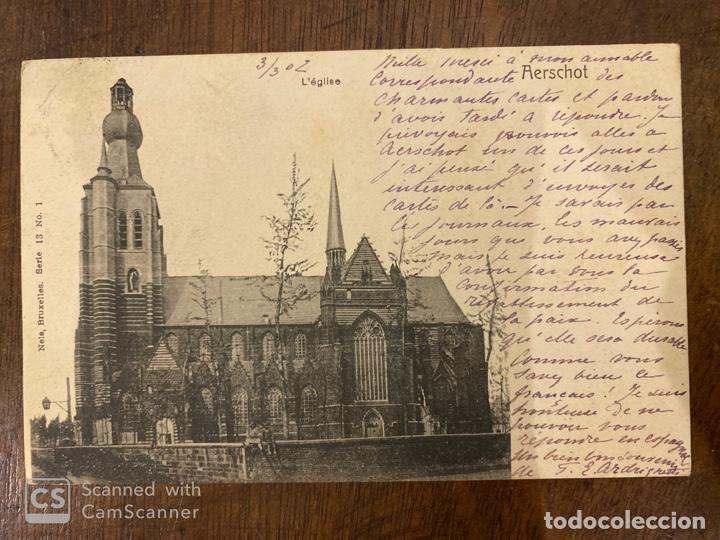 3/3 02
L'église
Aerschot
Mille merci à mon aimable
Correspondante des
charmantes cartes et pardon
d'avois tardé a répondre. Je
prévoyais pouvois alles a
Aerschot un de ces jours et
j'ai pensé qu'il serait
interessant d'envoyes des
cartes de là. Je savais par
les journaux, les mauvais
jours que vous avez passés
mais je suis heureuse
d'avoir par vous la
Confirmation du
rétablissement de
la paix. Espérons
qu'elle sera durable
Comme vous
savez bien le
français! Je suis
honteuse de ne
pouvoir vous
repondre en espagnol
Un bien bon souvenir
de F. E.
Nels, Bruxelles. Serie 13 No. 1
CS Scanned with
CamScanner
todocoleccion.net